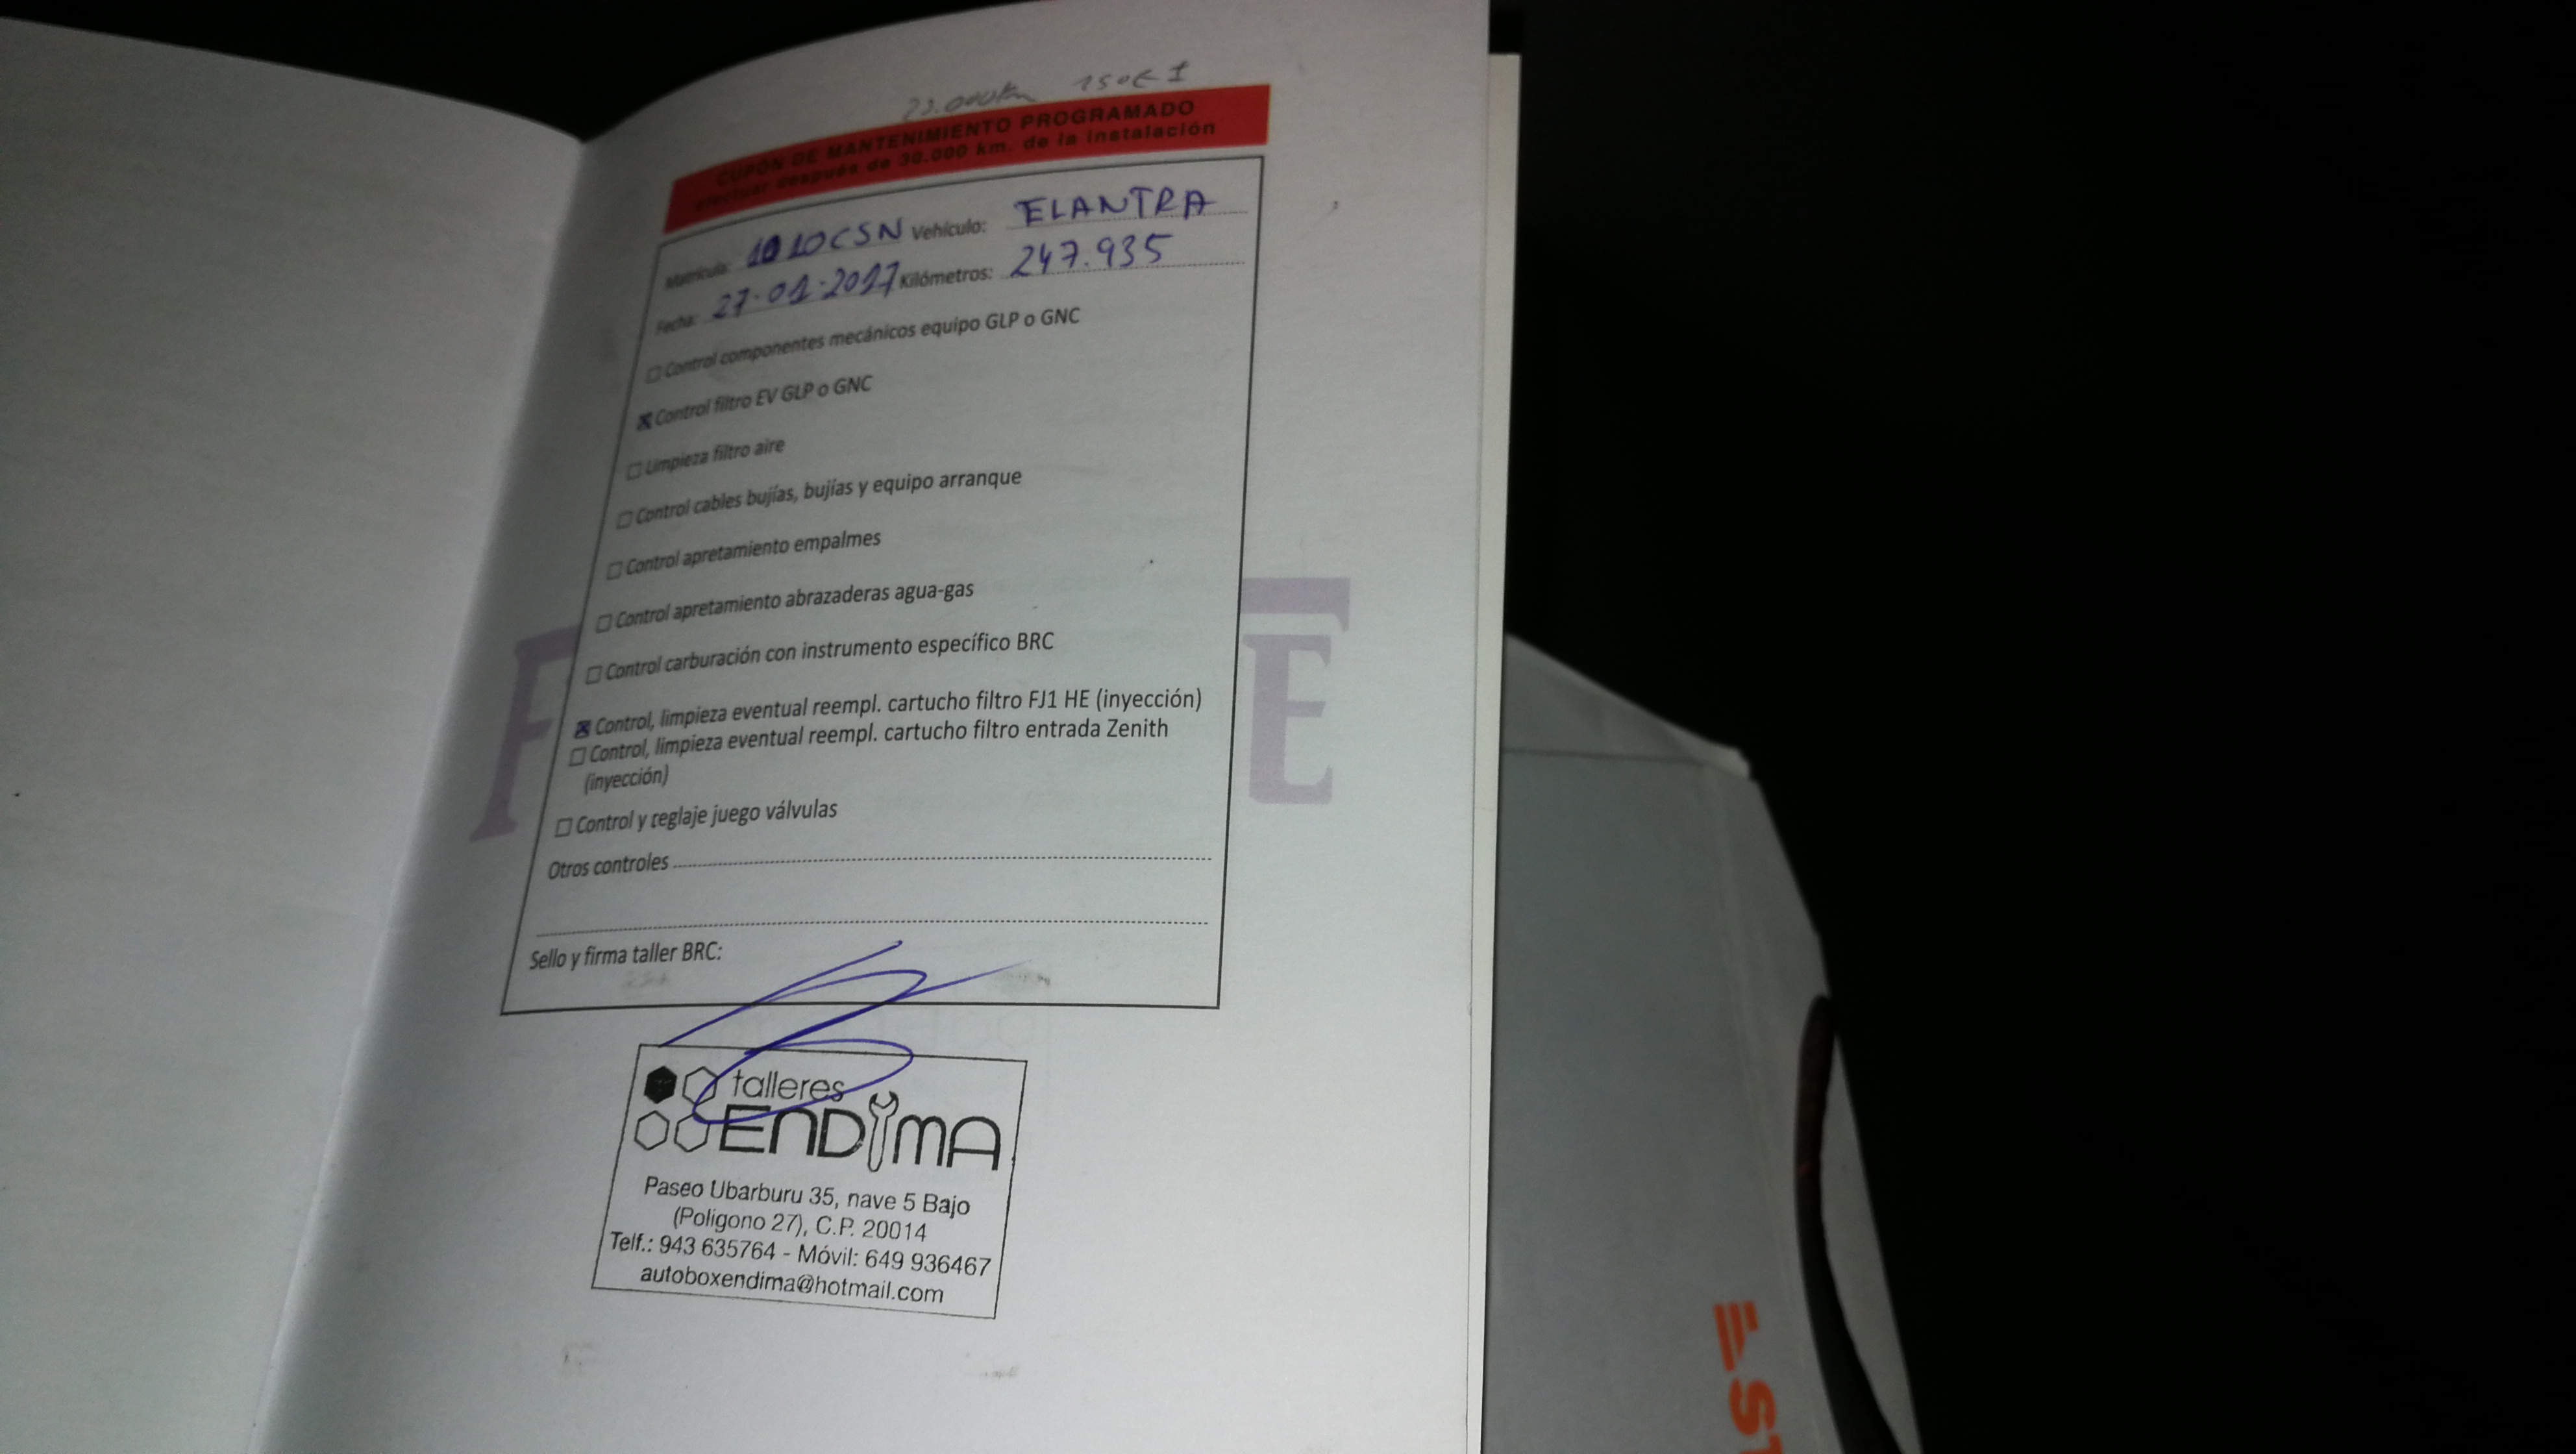 23.000km 150€ I
CUPÓN DE MANTENIMIENTO PROGRAMADO
efectuar después de 30.000 km. de la instalación
Matrícula: 1010CSN Vehículo: ELANTRA
Fecha: 27·01·2017 Kilómetros: 247.935
Control componentes mecánicos equipo GLP o GNC
Control filtro EV GLP o GNC
Limpieza filtro aire
Control cables bujías, bujías y equipo arranque
Control apretamiento empalmes
Control apretamiento abrazaderas agua-gas
Control carburación con instrumento específico BRC
Control, limpieza eventual reempl. cartucho filtro FJ1 HE (inyección)
Control, limpieza eventual reempl. cartucho filtro entrada Zenith
(inyección)
Control y reglaje juego válvulas
Otros controles
Sello y firma taller BRC:
talleres
ENDIMA
Paseo Ubarburu 35, nave 5 Bajo
(Poligono 27), C.P. 20014
Telf.: 943 635764 - Móvil: 649 936467
autoboxendima@hotmail.com